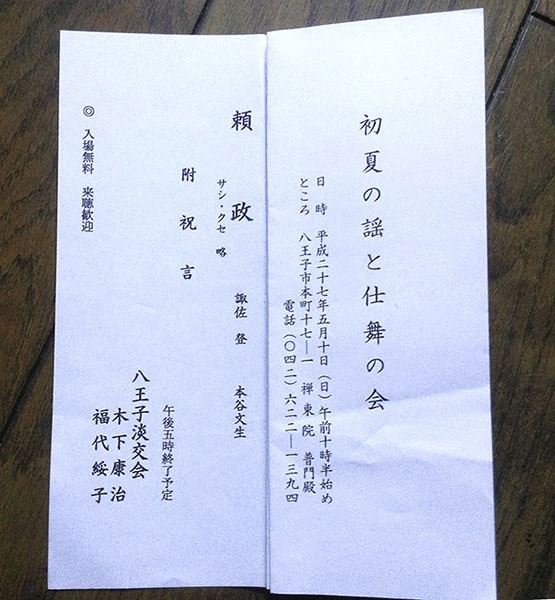 初夏の謡と仕舞の会
日時 平成二十七年五月十日（日）午前十時半始め
ところ 八王子市本町十七―一 禅東院 普門殿
電話（〇四二）六二二―一三九四
頼政 諏佐登 本谷文生
サシ・クセ 略
附祝言
午後五時終了予定
八王子淡交会
木下康治
福代綏子
◎ 入場無料 来聴歓迎